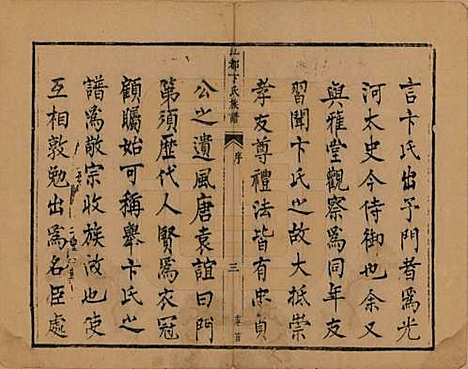 言卞氏出予門者為光
河太史今侍御也余又
與雅堂觀察為同年友
習聞卞氏之故大抵崇
孝友尊禮法皆有忠貞
江都卞氏族譜
序
三
公之遺風唐袁誼曰門
第須歷代人賢為衣冠
顧矚始可稱舉卞氏之
譜為敬宗收族故也使
互相敦勉出為名臣處